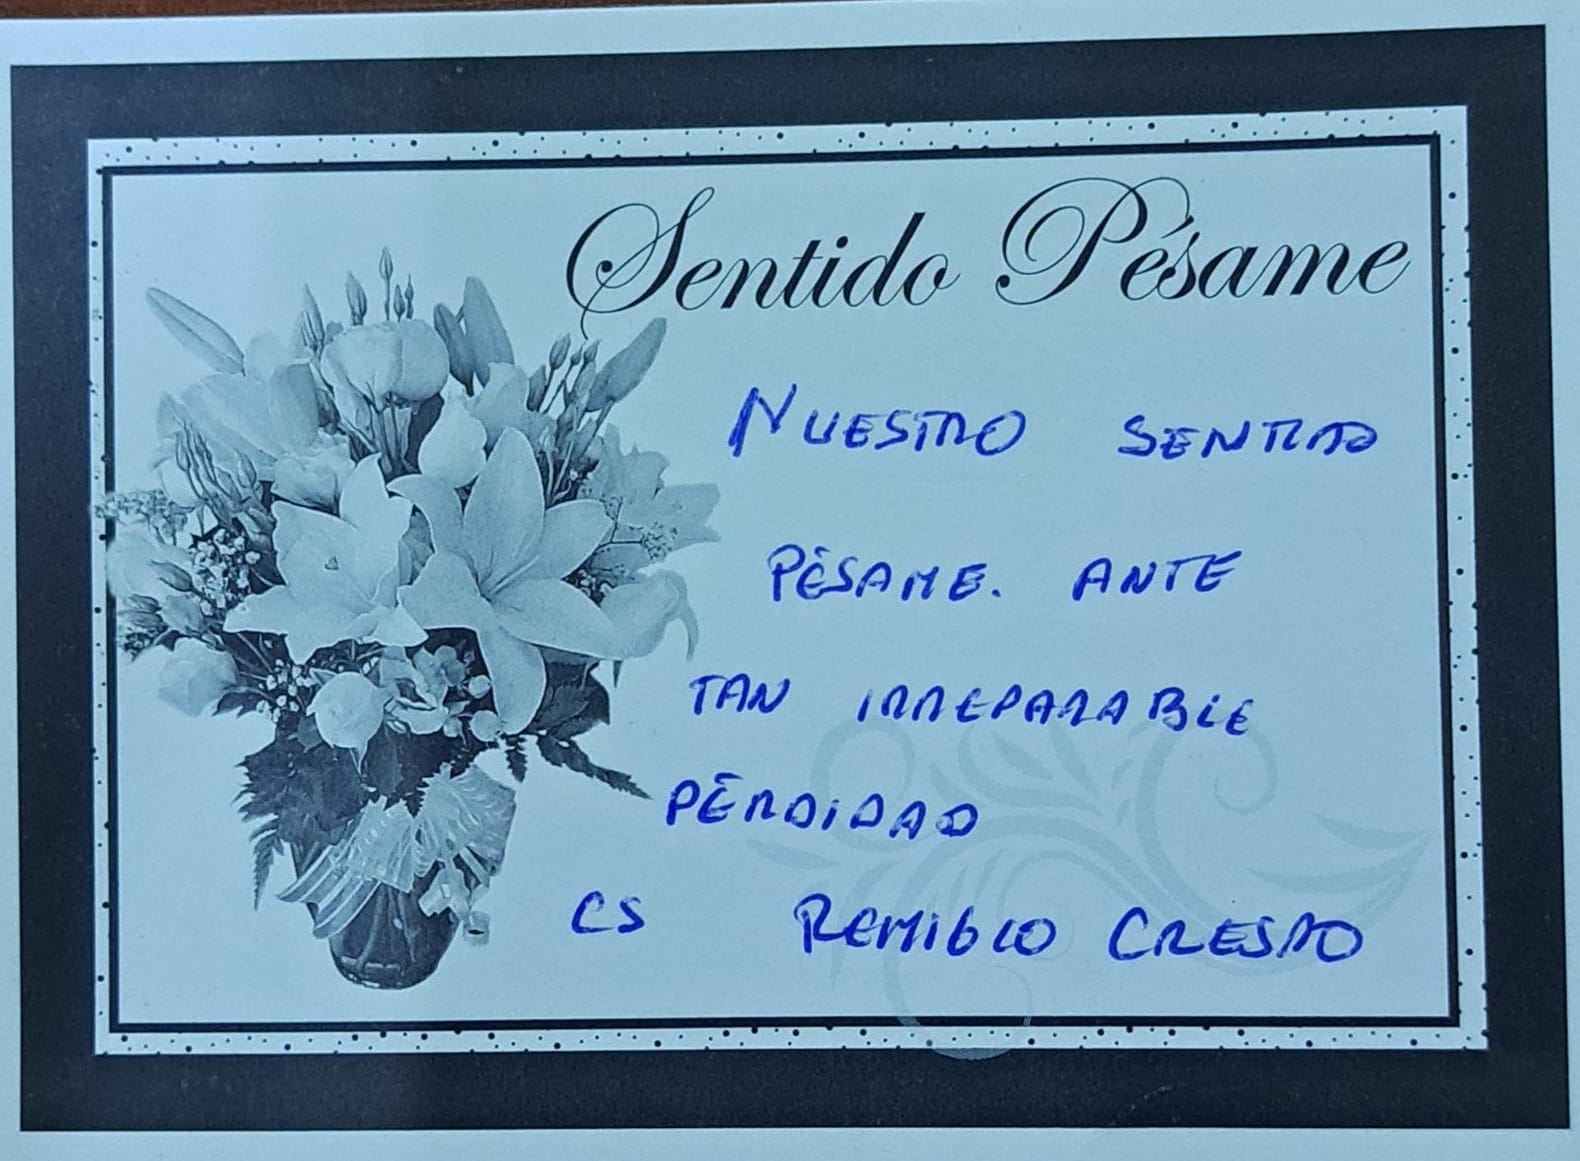 Sentido Pésame
NUESTRO SENTIDO
PÉSAME. ANTE
TAN IRREPARABLE
PÉRDIDAD
CS REMIGIO CRESPO